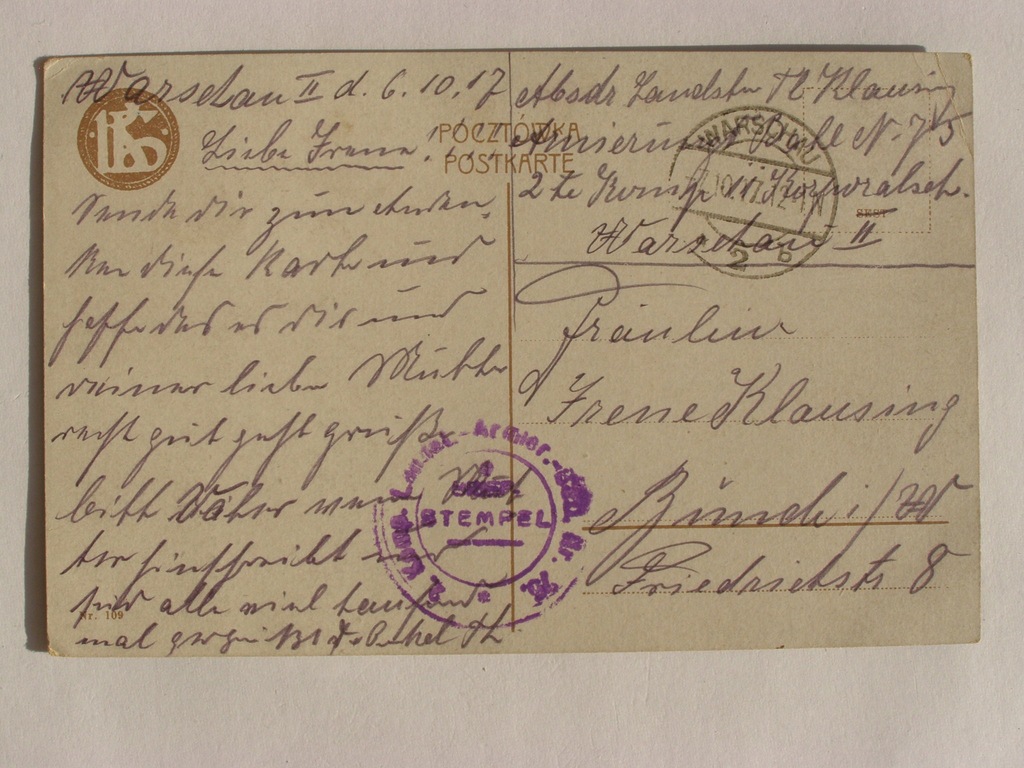 Warschau II d. 6.10.17
Liebe Irene!
Sende dir zum Anden-
ken diese Karte und
hoffe das es dir und
deiner lieben Mutter
recht gut geht grüße
bitte Vater wen Mut
ter hinschreibt und
seid alle viel tausend
mal gegrüßt v. Onkel Th
Nr. 109
POCZTÓWKA
POSTKARTE
Absdr Landstm Th Klausing
Armierungs Batl N. 75
2te Komp 11 Korporalsch.
Warschau II
WARSCHAU
2 b
Fräulein
Irene Klausing
Bünde i/W
Friedrichstr 8
STEMPEL